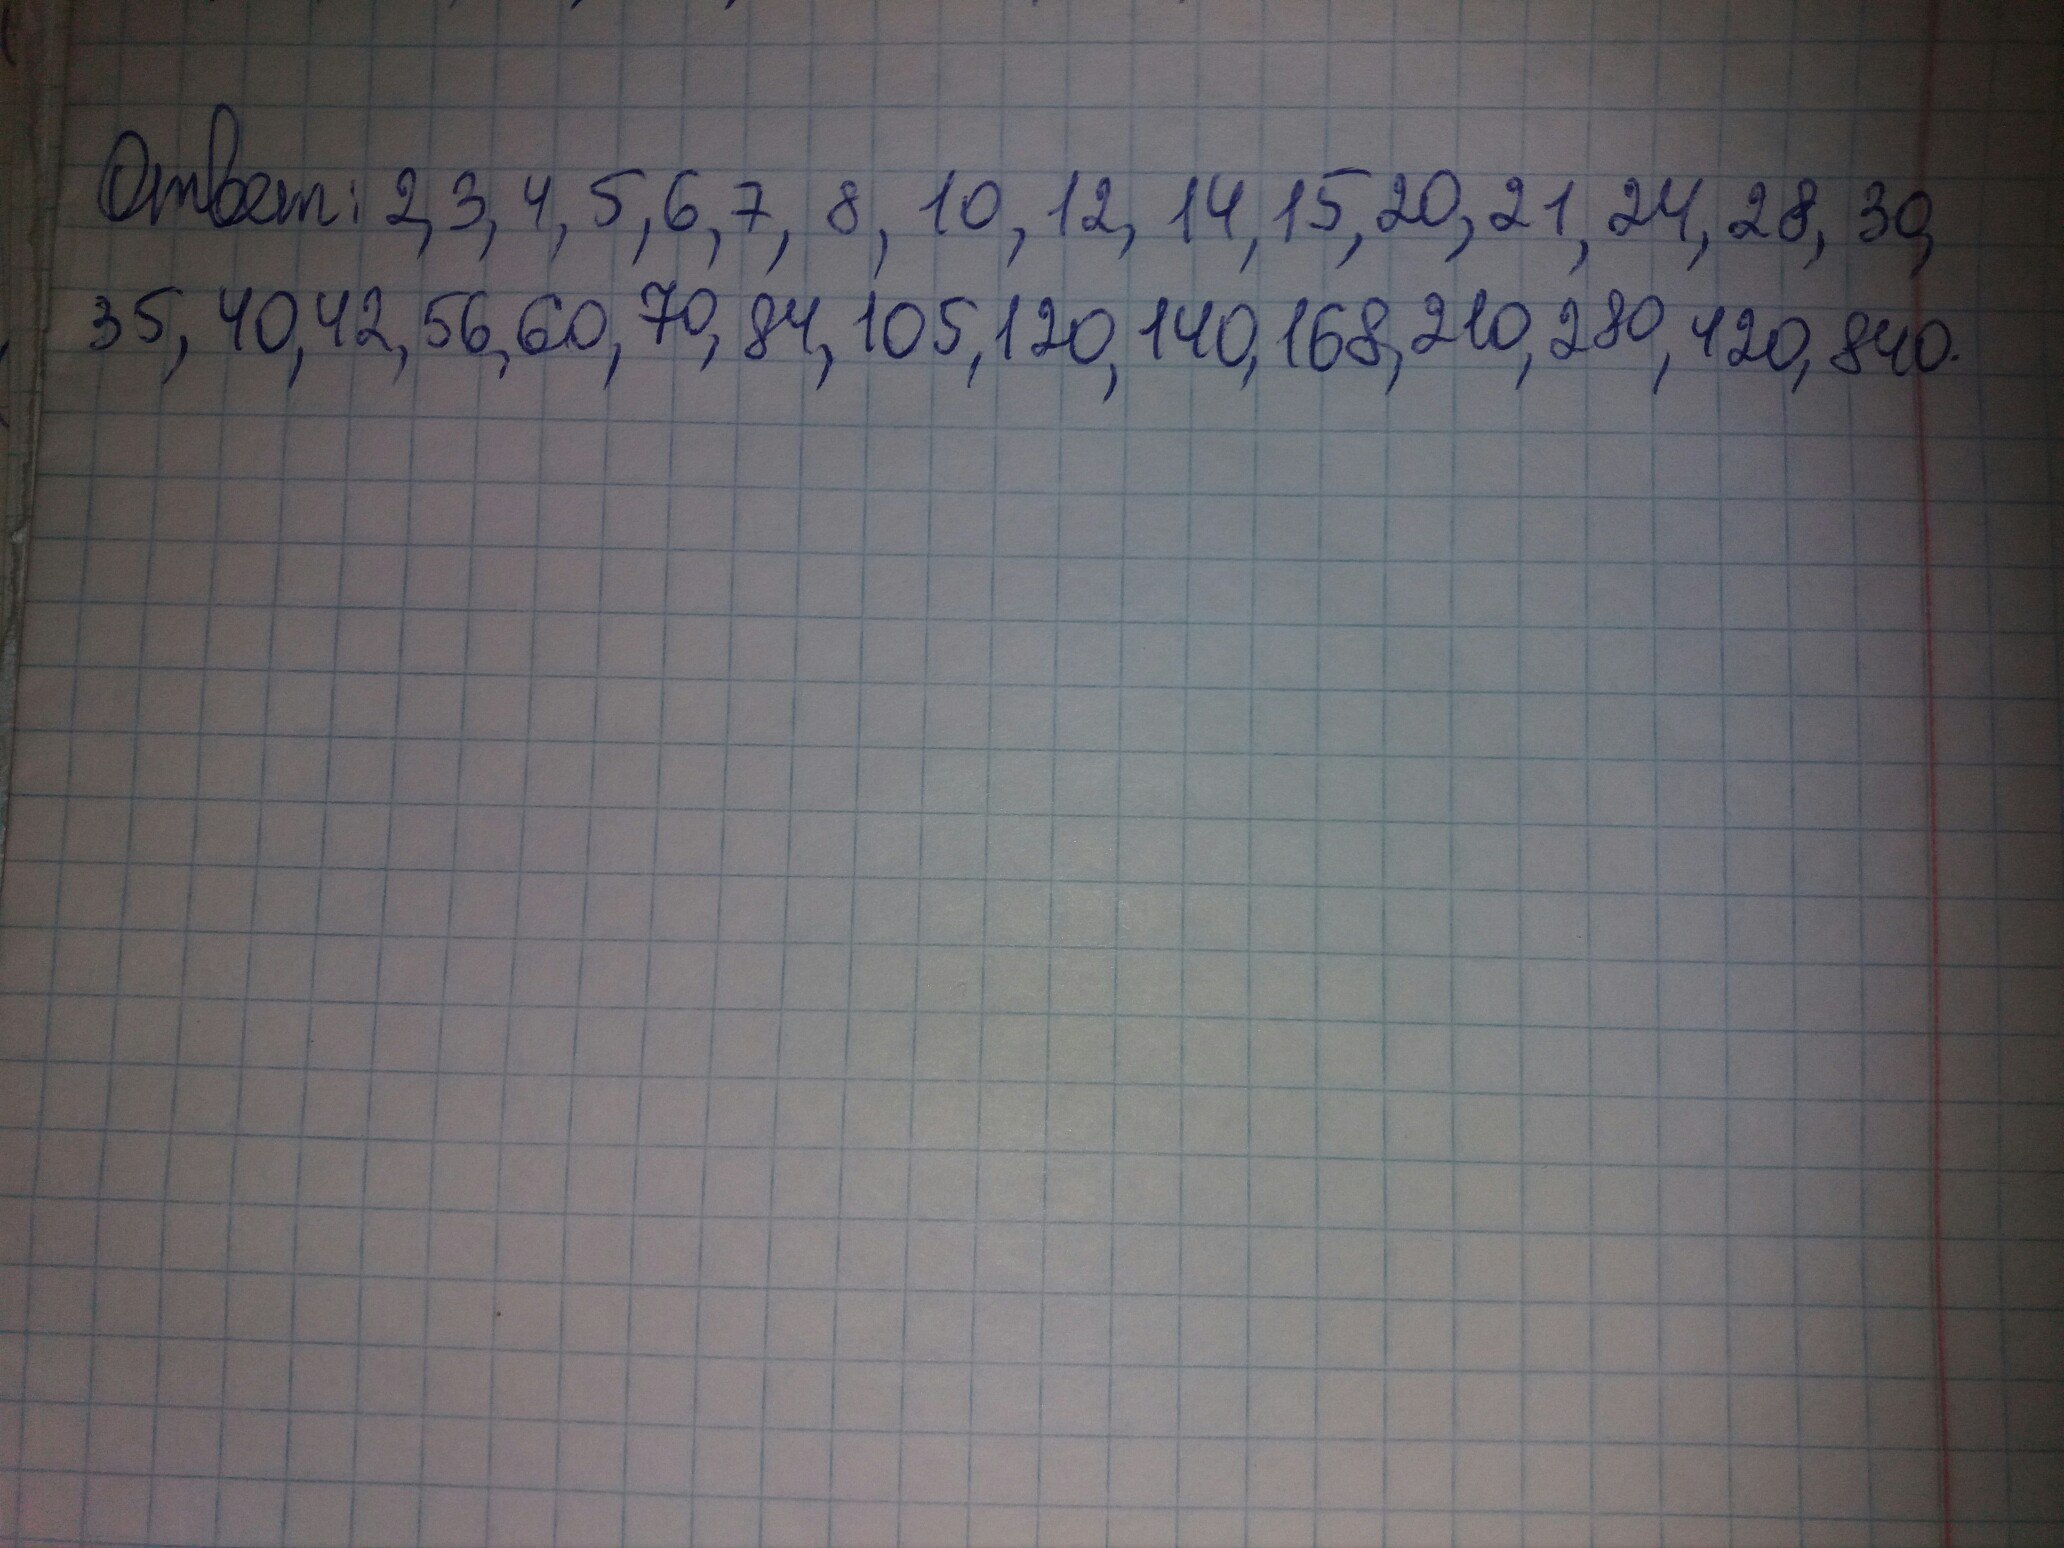 Ответ: 2,3,4,5,6,7, 8, 10, 12, 14,15,20,21,24,28,30,
35,40,42,56,60,70,84,105,120,140,168,210,280,420,840.